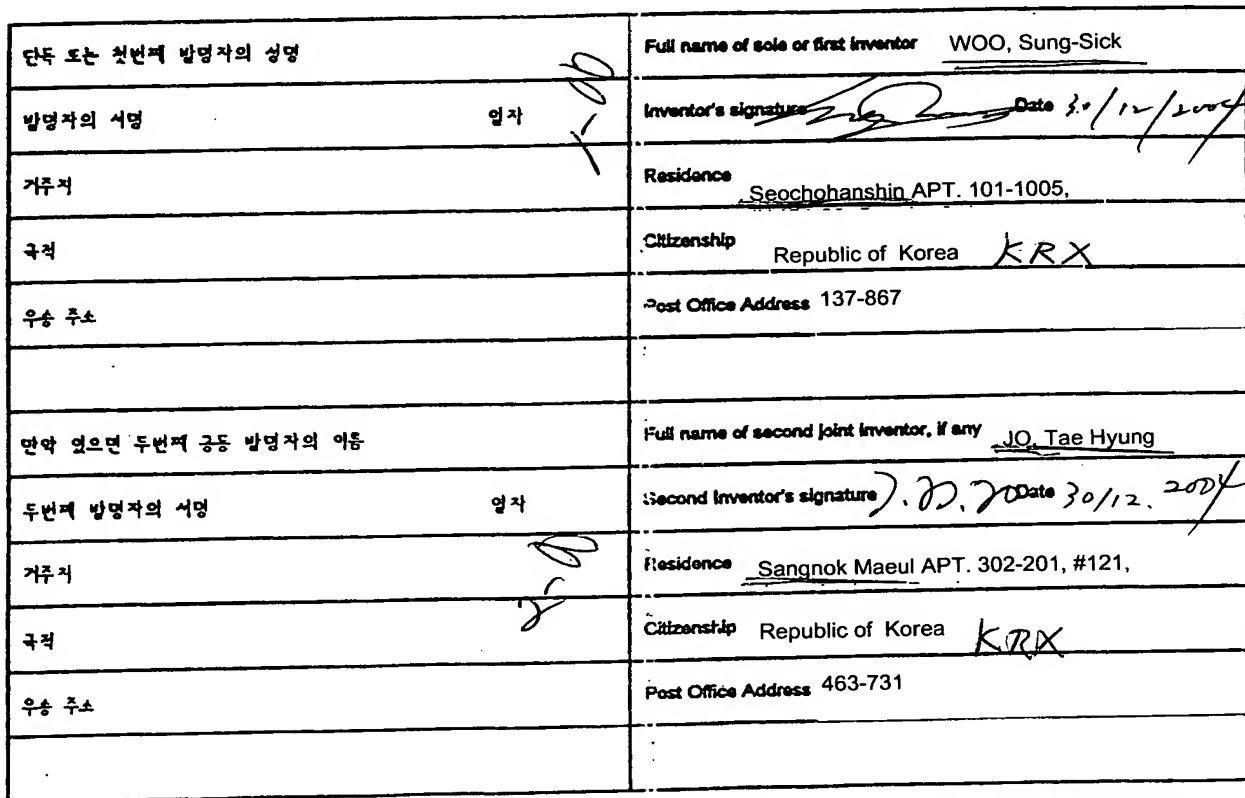 단독 또는 첫번째 발명자의 성명 Full name of sole or first inventor WOO, Sung-Sick
발명자의 서명 일자 Inventor's signature Date 30/12/2004
거주지 Residence Seochohanshin APT. 101-1005,
국적 Citizenship Republic of Korea KRX
우송 주소 Post Office Address 137-867
만약 있으면 두번째 공동 발명자의 이름 Full name of second joint inventor, if any JO, Tae Hyung
두번째 발명자의 서명 일자 Second Inventor's signature Date 30/12. 2004
거주지 Residence Sangnok Maeul APT. 302-201, #121,
국적 Citizenship Republic of Korea KRX
우송 주소 Post Office Address 463-731